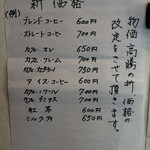 新価格
(例)
ブレンドコーヒー 600円
ストレートコーヒー 700円
カフェ・オレ 650円
カフェ・クレーム 700円
カフェ・カプチーノ 750円
アイスコーヒー 600円
カフェ・フロール 700円
700円
紅茶 600円
ミルクティ 650円
物価高騰の折価格の
改定をさせて頂きます。